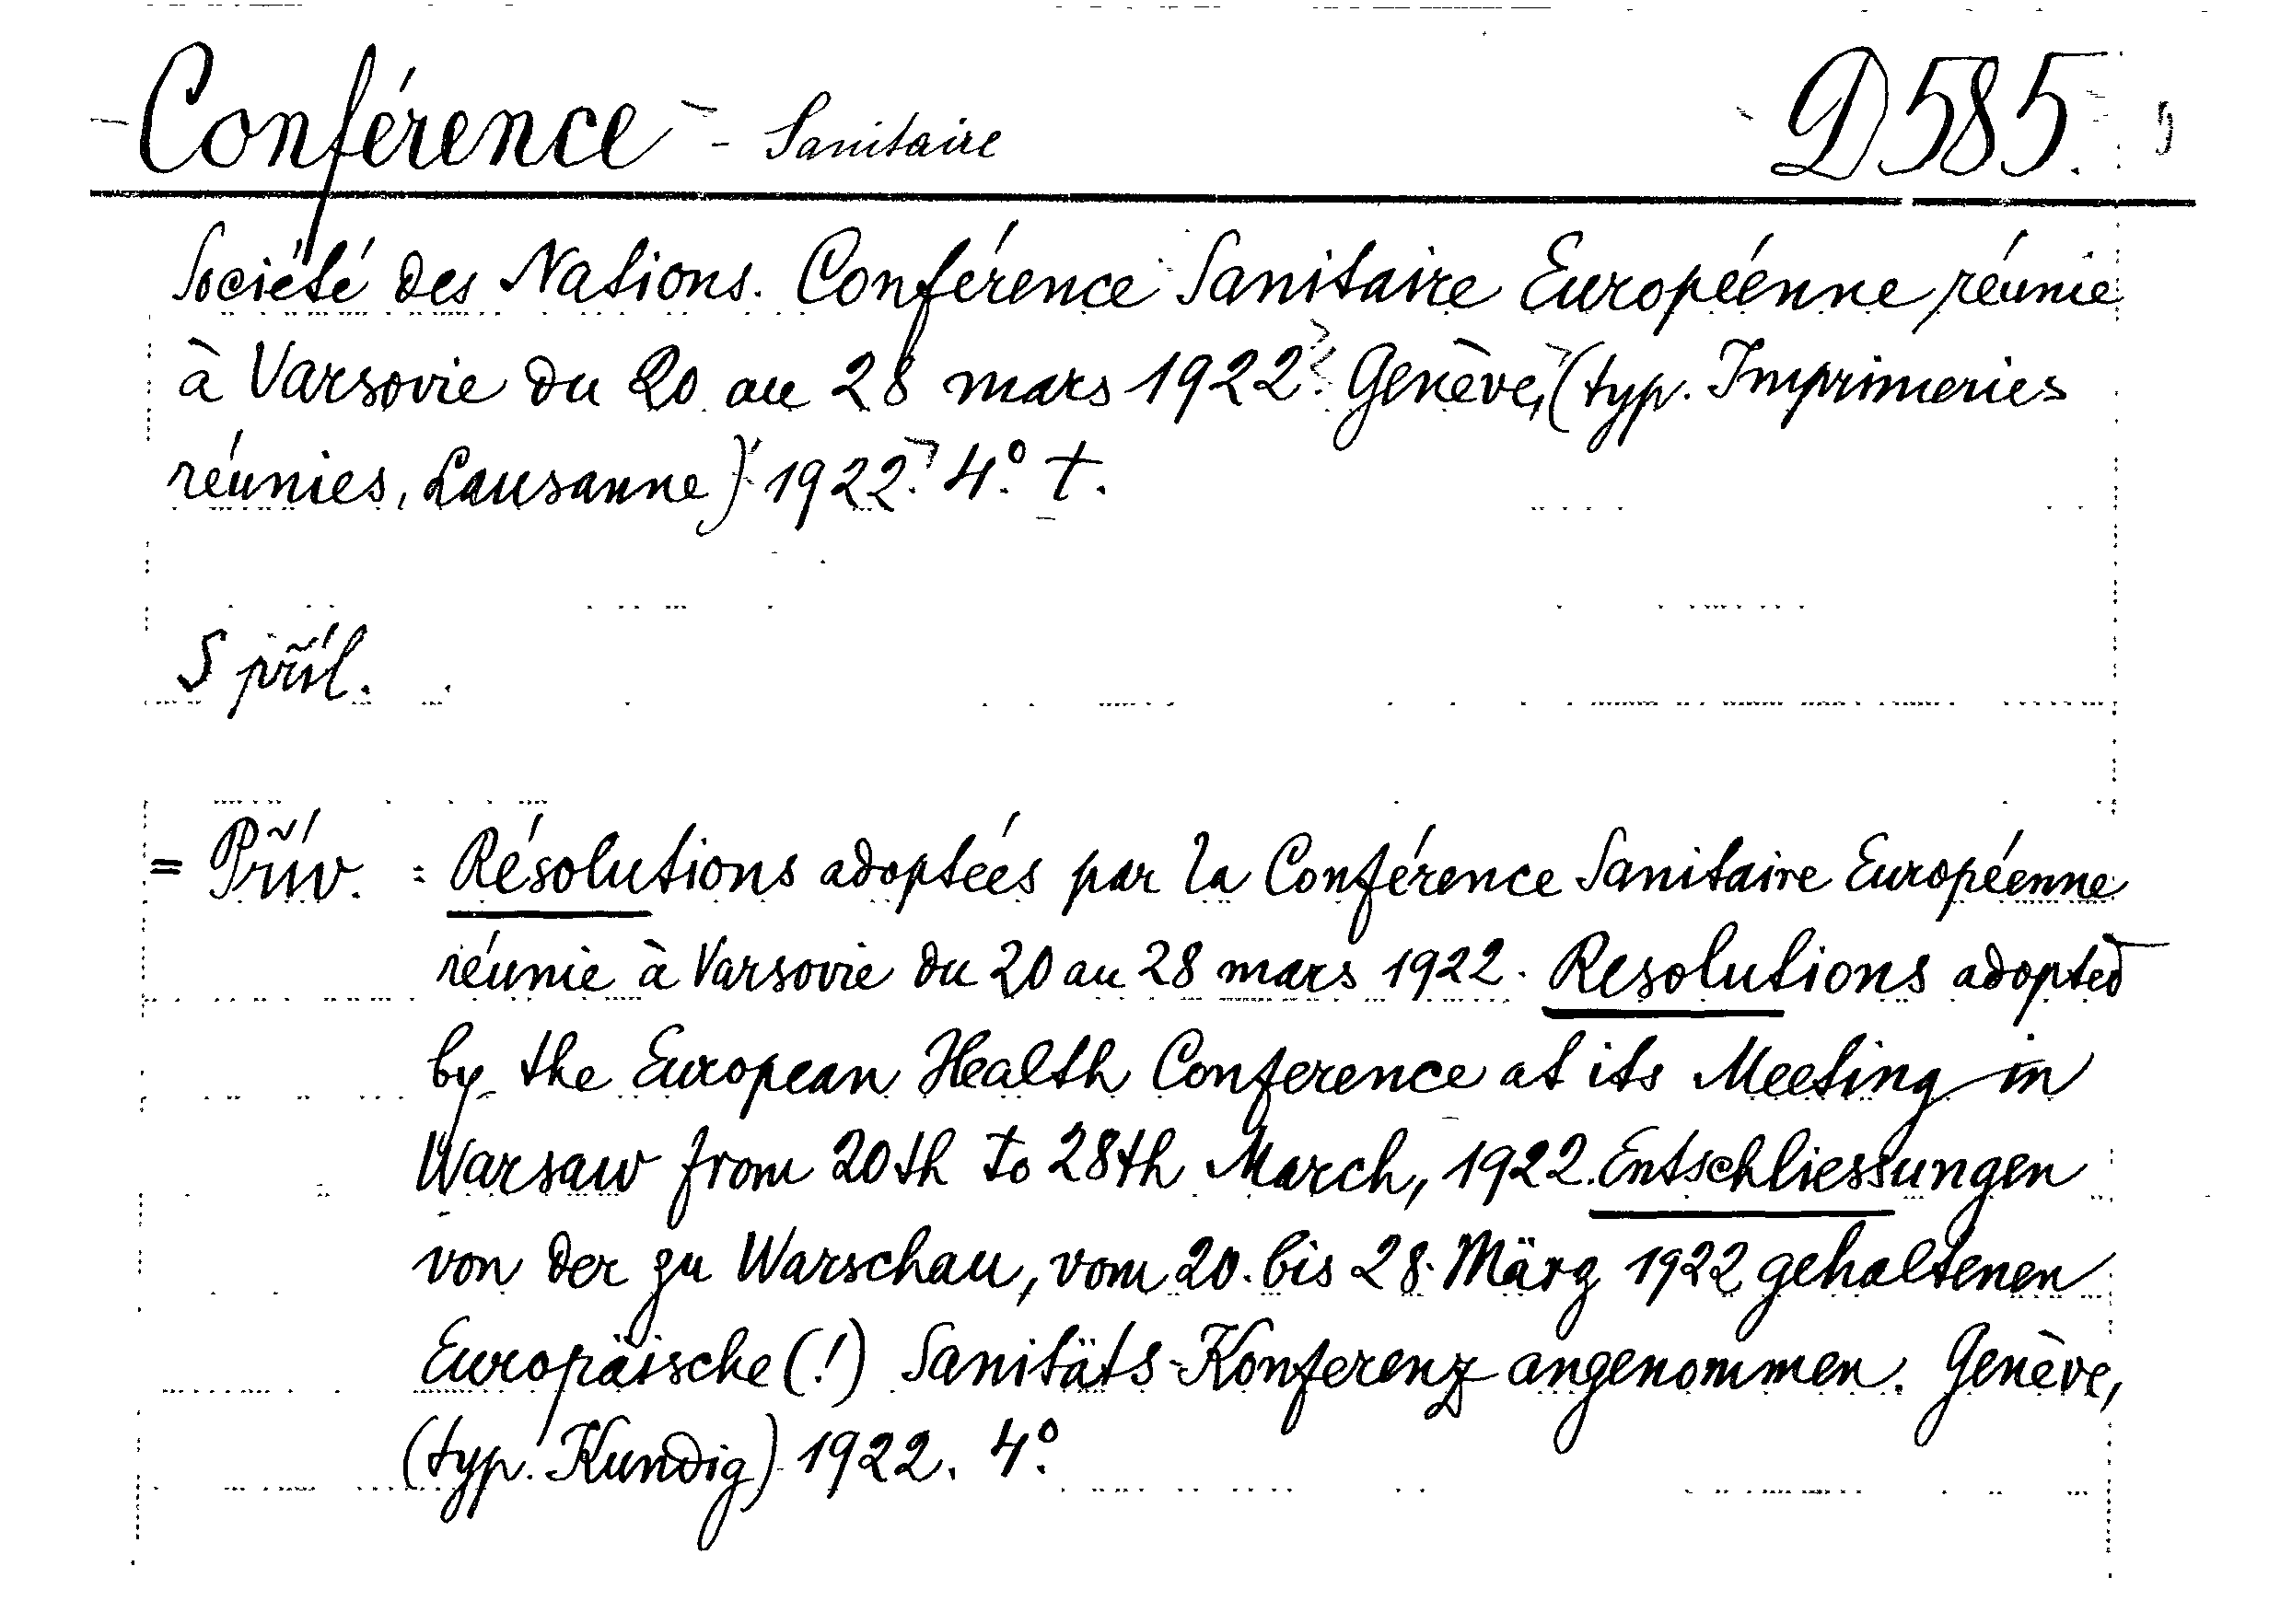 Conférence - Sanitaire D 585.
Société des Nations. Conférence Sanitaire Européenne réunie
à Varsovie du 20 au 28 mars 1922. Genève, (typ. Imprimeries
réunies, Lausanne) 1922. 4° t.
S příl.
= Přív. : Résolutions adoptées par la Conférence Sanitaire Européenne
réunie à Varsovie du 20 au 28 mars 1922. Resolutions adopted
by the European Health Conference at its Meeting in
Warsaw from 20th to 28th March, 1922. Entschliessungen
von der zu Warschau, vom 20. bis 28. März 1922 gehaltenen
Europäische (!) Sanitäts-Konferenz angenommen. Genève,
(typ. Kundig) 1922. 4°.